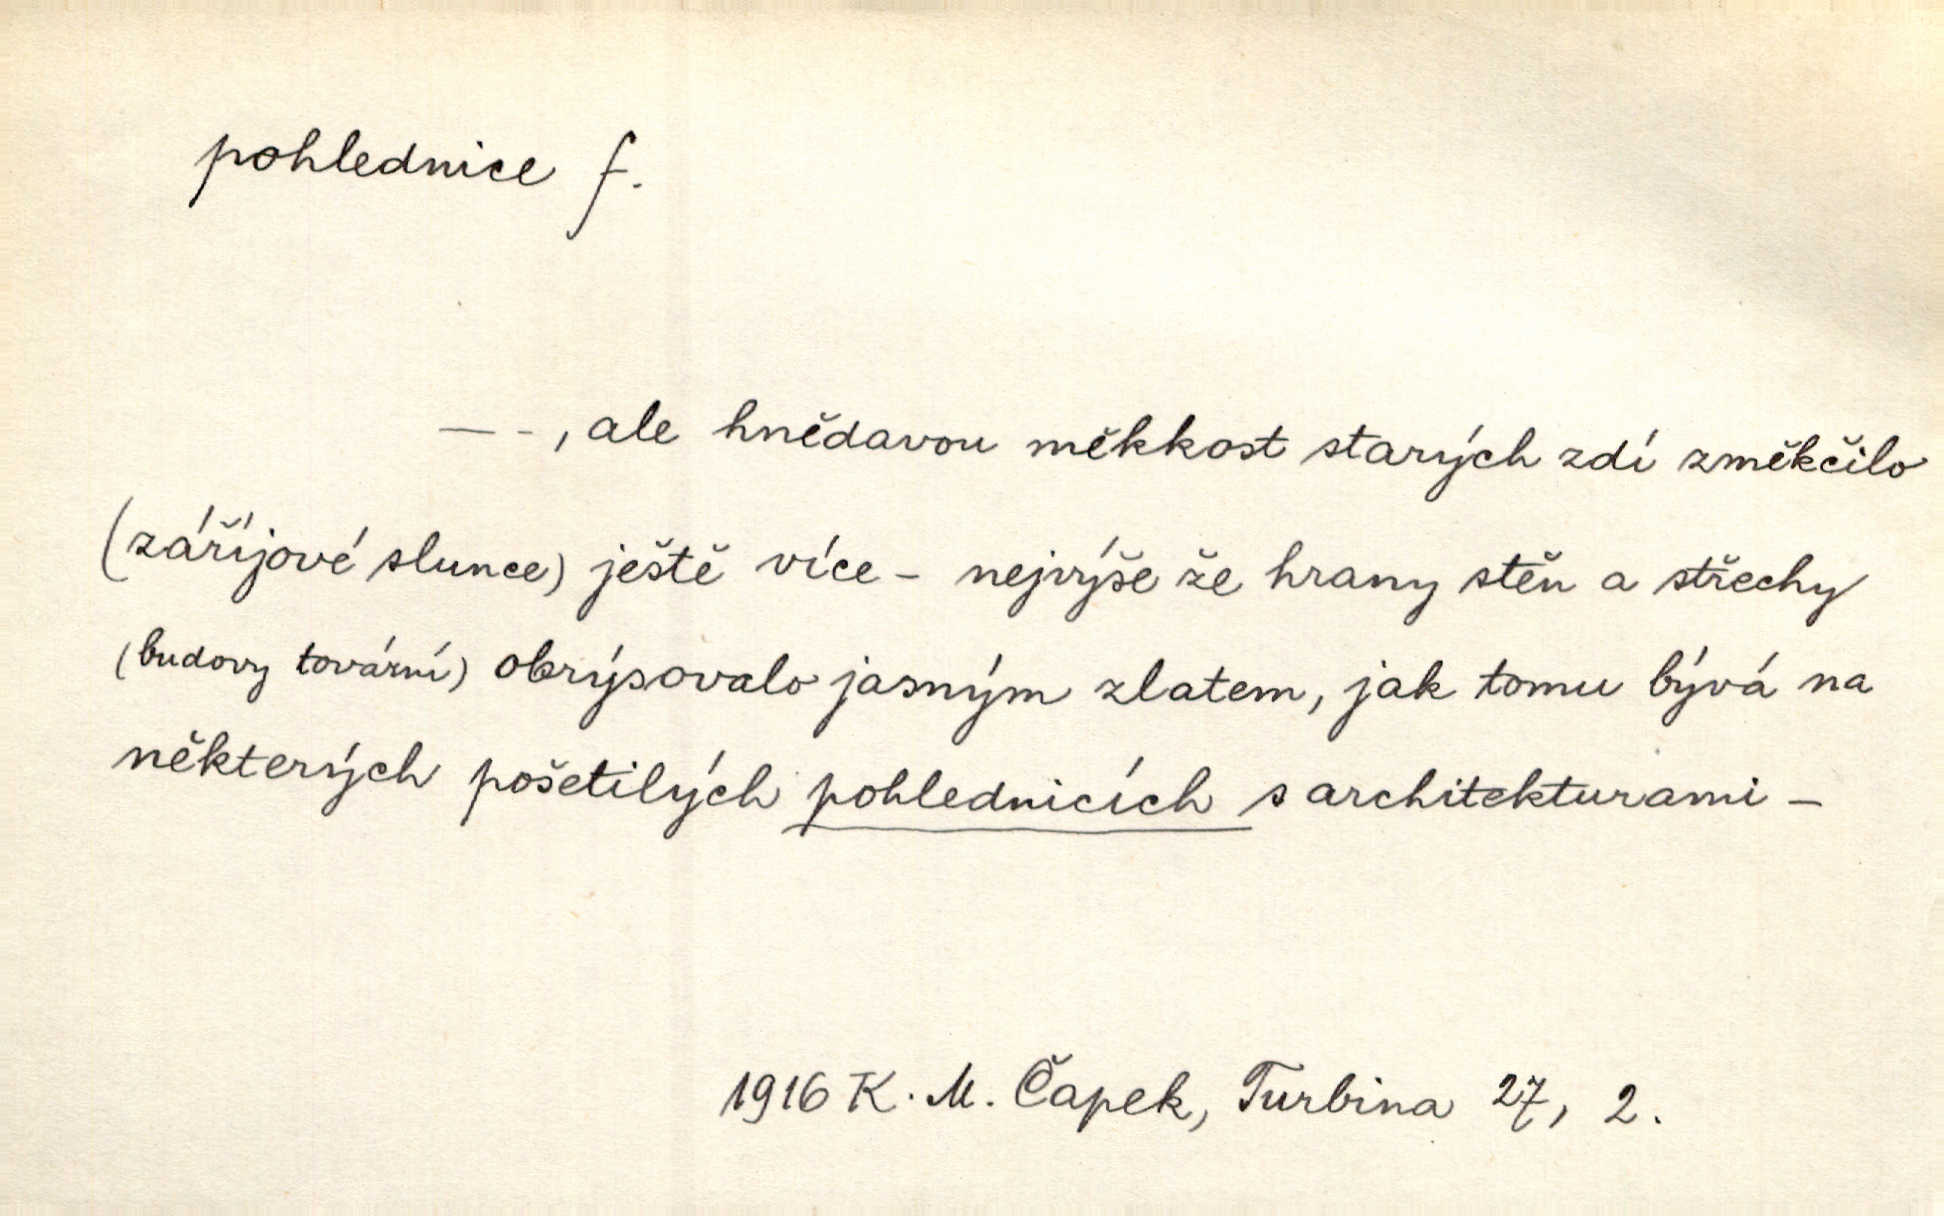 pohlednice f.
— - , ale hnědavou měkkost starých zdí změkčilo
(záříjové slunce) ještě více – nejvýše že hrany stěn a střechy
(budovy tovární) obrýsovalo jasným zlatem, jak tomu bývá na
některých pošetilých pohlednicích s architekturami –
1916 K. M. Čapek, Turbina 27, 2.